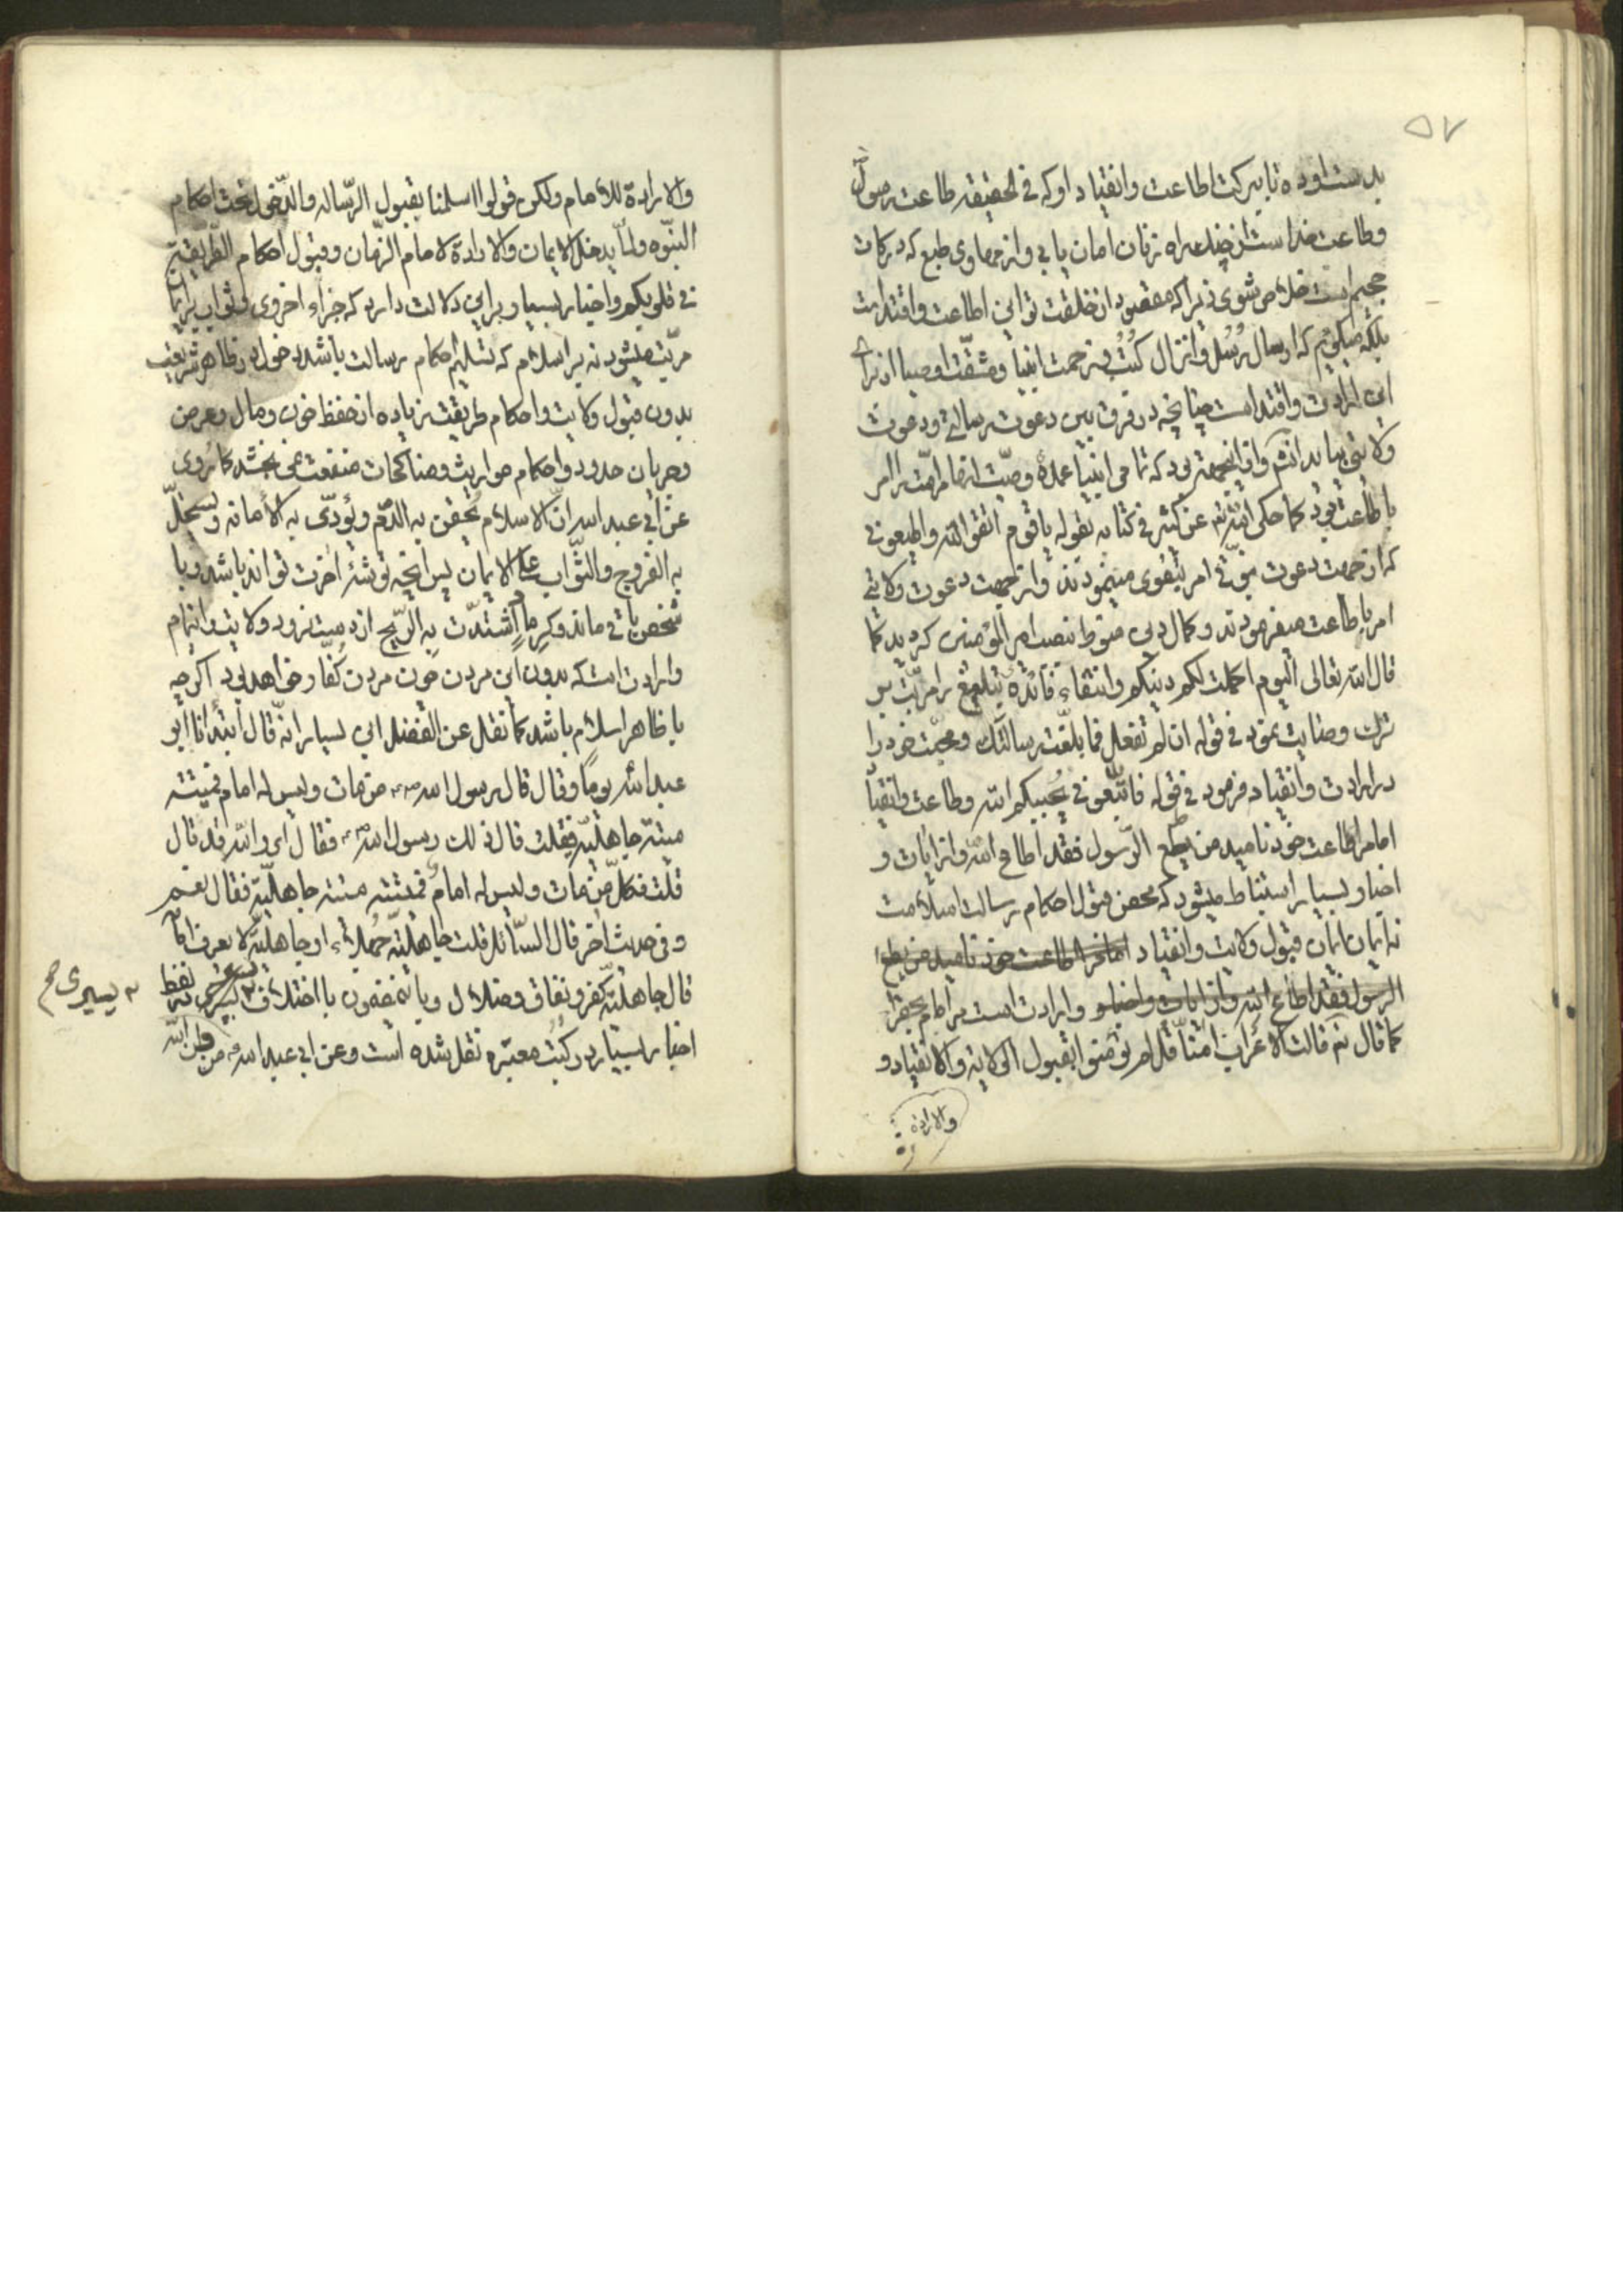 ۵۷
بدست اوده تا ببرکت اطاعت و انقیاد او که فی الحقیقه طاعت رسول
و طاعت خداست از چند راه زنان امان یابی و از طبع که درکات
جحیم است خلاص شوی زیرا که مقصود از خلقت تو این اطاعت و اقتداست
بلکه میگویم که ارسال رسل و انزال کتب و زحمت انبیا و مشقت اوصیا از برای
این ارادت و اقتداست چنانچه در فرق بین دعوت رسالتی و دعوت
ولایتی بود که تمامی انبیا عمده وصیت امت را امر
باطاعت بود کما حکی الله تم عن کثیر فی کتابه بقوله یا قوم اتقوا الله و اطیعونی
که از جهت دعوت نبوتی امر بتقوی مینمودند و از جهت دعوت ولایتی
امر باطاعت میفرمودند و کمال دین منوط بنصب امیر المؤمنین کردید کما
قال الله تعالی الیوم اکملت لکم دینکم و انتفاء فائدهٔ تبلیغ را مرتب بر
ترک وصایت نمود فی قوله ان لم تفعل فما بلغت رسالتک و محبت خود را
در ارادت و انقیاد فرمود فی قوله فاتبعونی یحببکم الله و طاعت و انقیاد
امام را طاعت خود نامید من یطع الرسول فقد اطاع الله و از ایات و
اخبار بسیار استنباط میشود که محض قبول احکام رسالت اسلامست
نه ایمان ایمان قبول ولایت و انقیاد امام را طاعت خود نامید من یطع
الرسول فقد اطاع الله و از ایات و اخبار و ارادت است مر امام
کما قال تم قالت الاعراب امنا قل لم تؤمنوا بقبول الولایه و الانقیاد و
والارادة
والارادة للامام ولکن قولوا اسلمنا بقبول الرساله والدخول تحت احکام
النبوه ولما یدخل الایمان والارادة لامام الزمان وقبول احکام الطریقیة
فی قلوبکم و اخبار بسیار بر این دلالت دارد که جزاء اخروی و ثواب بر ایمان
مرتب میشود نه بر اسلام که تسلیم احکام رسالت باشد و دخول در ظاهر شریعت
بدون قبول ولایت و احکام طریقت زیاده از حفظ خون و مال و عرض
و جریان حدود و احکام مواریث و مناکحات منفعت نمی بخشد کما روی
عن ابی عبد الله ان الاسلام یحقن به الدم ویؤدی به الامانه ویستحل
به الفروج والثواب علی الایمان پس انچه توشهٔ اخرت تواند باشد و با
شخص باقی ماند و کرماد اشتدت به الریح از دست نرود ولایت و ایتمام
و ارادت است که بدون این مردن چون مردن کفار خواهد بود اگرچه
با ظاهر اسلام باشد کما نقل عن الفضل ابن یسار انه قال ابتدانا ابو
عبد الله یوما وقال قال رسول الله ص من مات ولیس له امام فمیتته
میتة جاهلیة فقلت قال ذلک رسول الله ص فقال ای والله قد قال
قلت فکل من مات ولیس له امام فمیتته میتته جاهلیة فقال نعم
و فی حدیث اخر قال السائل قلت جاهلیة جهلاء او جاهلیة لا یعرف امامه
قال جاهلیة کفر و نفاق و ضلال و باین مضمون با اختلاف یسیری در لفظ
یسیری صح
اخبار بسیار در کتب معتبره نقل شده است و عن ابی عبد الله ع من دان الله